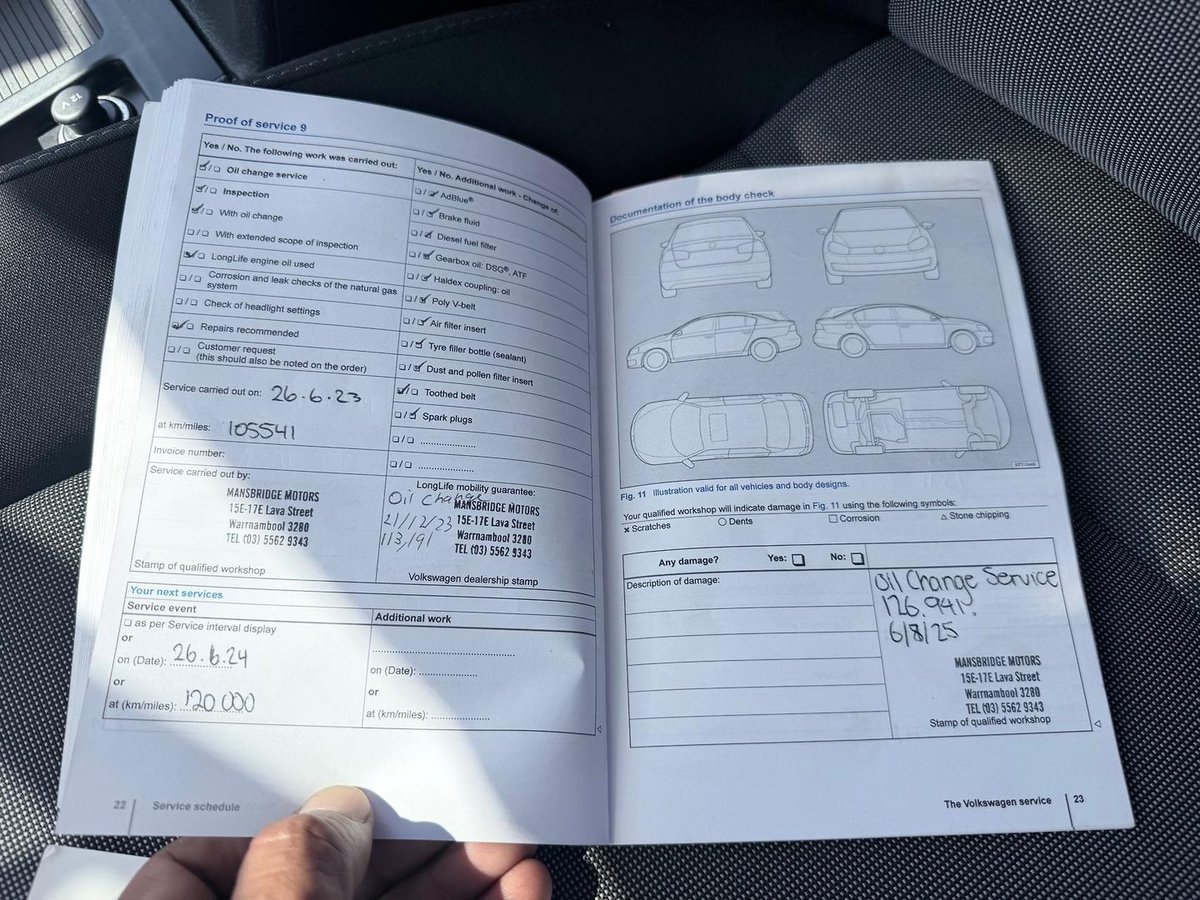 12 V
Proof of service 9
Yes / No. The following work was carried out:
☑/☐ Oil change service
☑/☐ Inspection
☑/☐ With oil change
☐/☐ With extended scope of inspection
☑/☐ LongLife engine oil used
☐/☐ Corrosion and leak checks of the natural gas
system
☐/☐ Check of headlight settings
☑/☐ Repairs recommended
☐/☐ Customer request
(this should also be noted on the order)
Service carried out on: 26.6.23
at km/miles: 105541
Invoice number:
Service carried out by:
MANSBRIDGE MOTORS
15E-17E Lava Street
Warrnambool 3280
TEL (03) 5562 9343
Stamp of qualified workshop
Yes / No. Additional work - Change of:
☐/☑ AdBlue®
☐/☑ Brake fluid
☐/☑ Diesel fuel filter
☐/☑ Gearbox oil: DSG®, ATF
☐/☑ Haldex coupling: oil
☐/☑ Poly V-belt
☐/☑ Air filter insert
☐/☑ Tyre filler bottle (sealant)
☐/☑ Dust and pollen filter insert
☑/☐ Toothed belt
☐/☑ Spark plugs
☐/☐ ....................
☐/☐ ....................
LongLife mobility guarantee:
Oil Change
21/12/23
113,191
MANSBRIDGE MOTORS
15E-17E Lava Street
Warrnambool 3280
TEL (03) 5562 9343
Volkswagen dealership stamp
Your next services
Service event
☐ as per Service interval display
or
on (Date): 26.6.24
or
at (km/miles): 120 000
Additional work
on (Date): ....................
or
at (km/miles): ....................
22 Service schedule
Documentation of the body check
Fig. 11 Illustration valid for all vehicles and body designs.
Your qualified workshop will indicate damage in Fig. 11 using the following symbols:
× Scratches ○ Dents ☐ Corrosion △ Stone chipping
Any damage? Yes: ☐ No: ☐
Description of damage:
Oil Change Service
126.941.
6/8/25
MANSBRIDGE MOTORS
15E-17E Lava Street
Warrnambool 3280
TEL (03) 5562 9343
Stamp of qualified workshop
The Volkswagen service 23